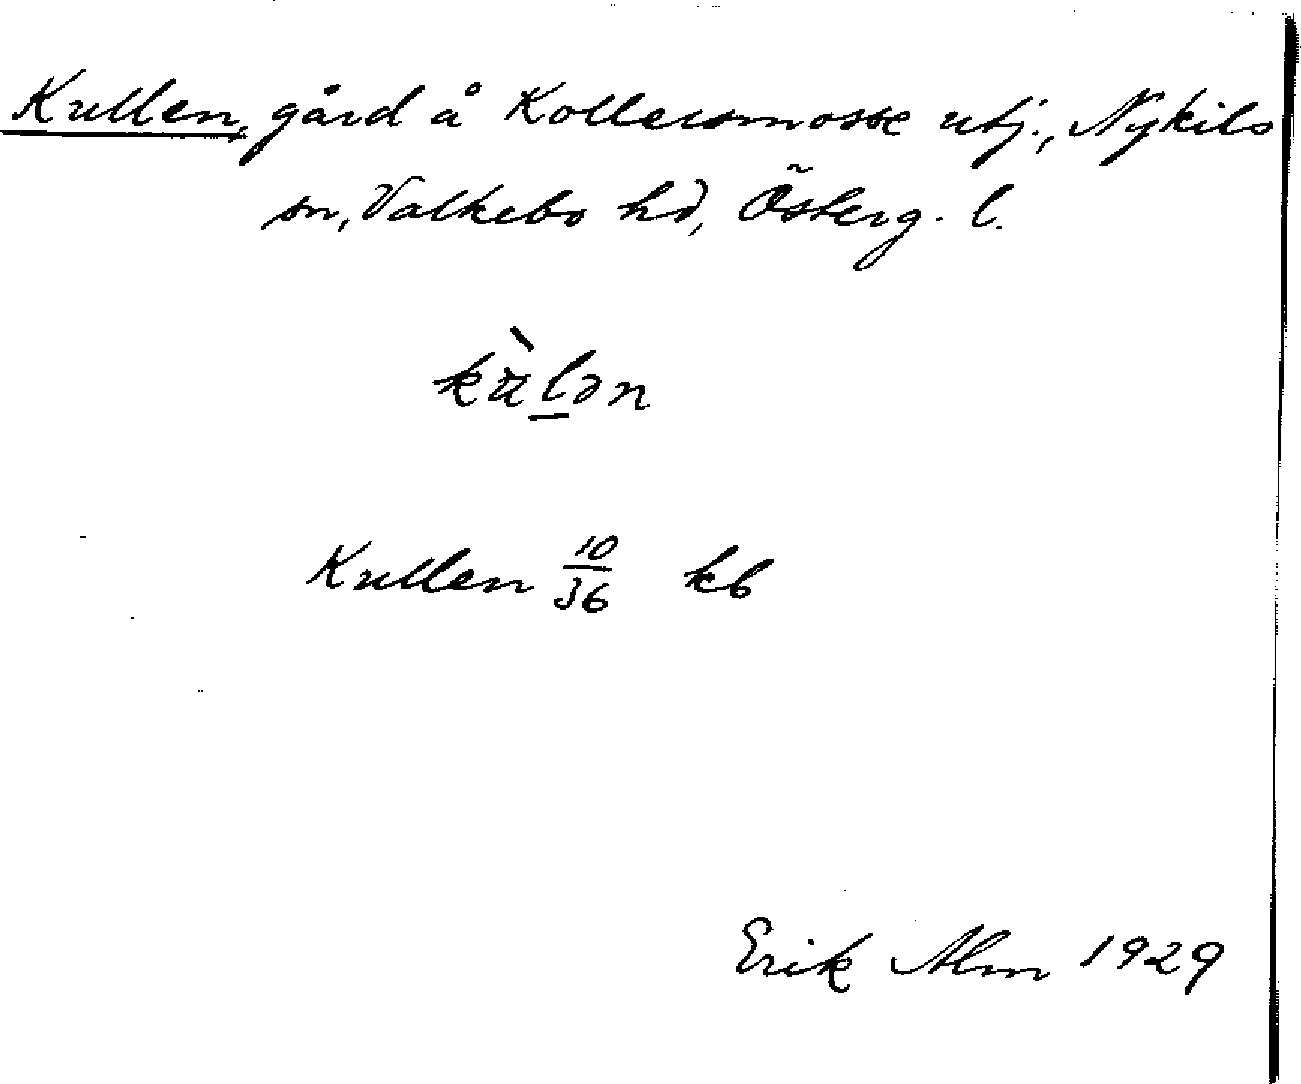 Kullen, gård å Kollersmosse utj., Nykils
sn, Valkebo hd, Österg. l.
kùlən
Kullen 10/36 kb
Erik Alm 1929